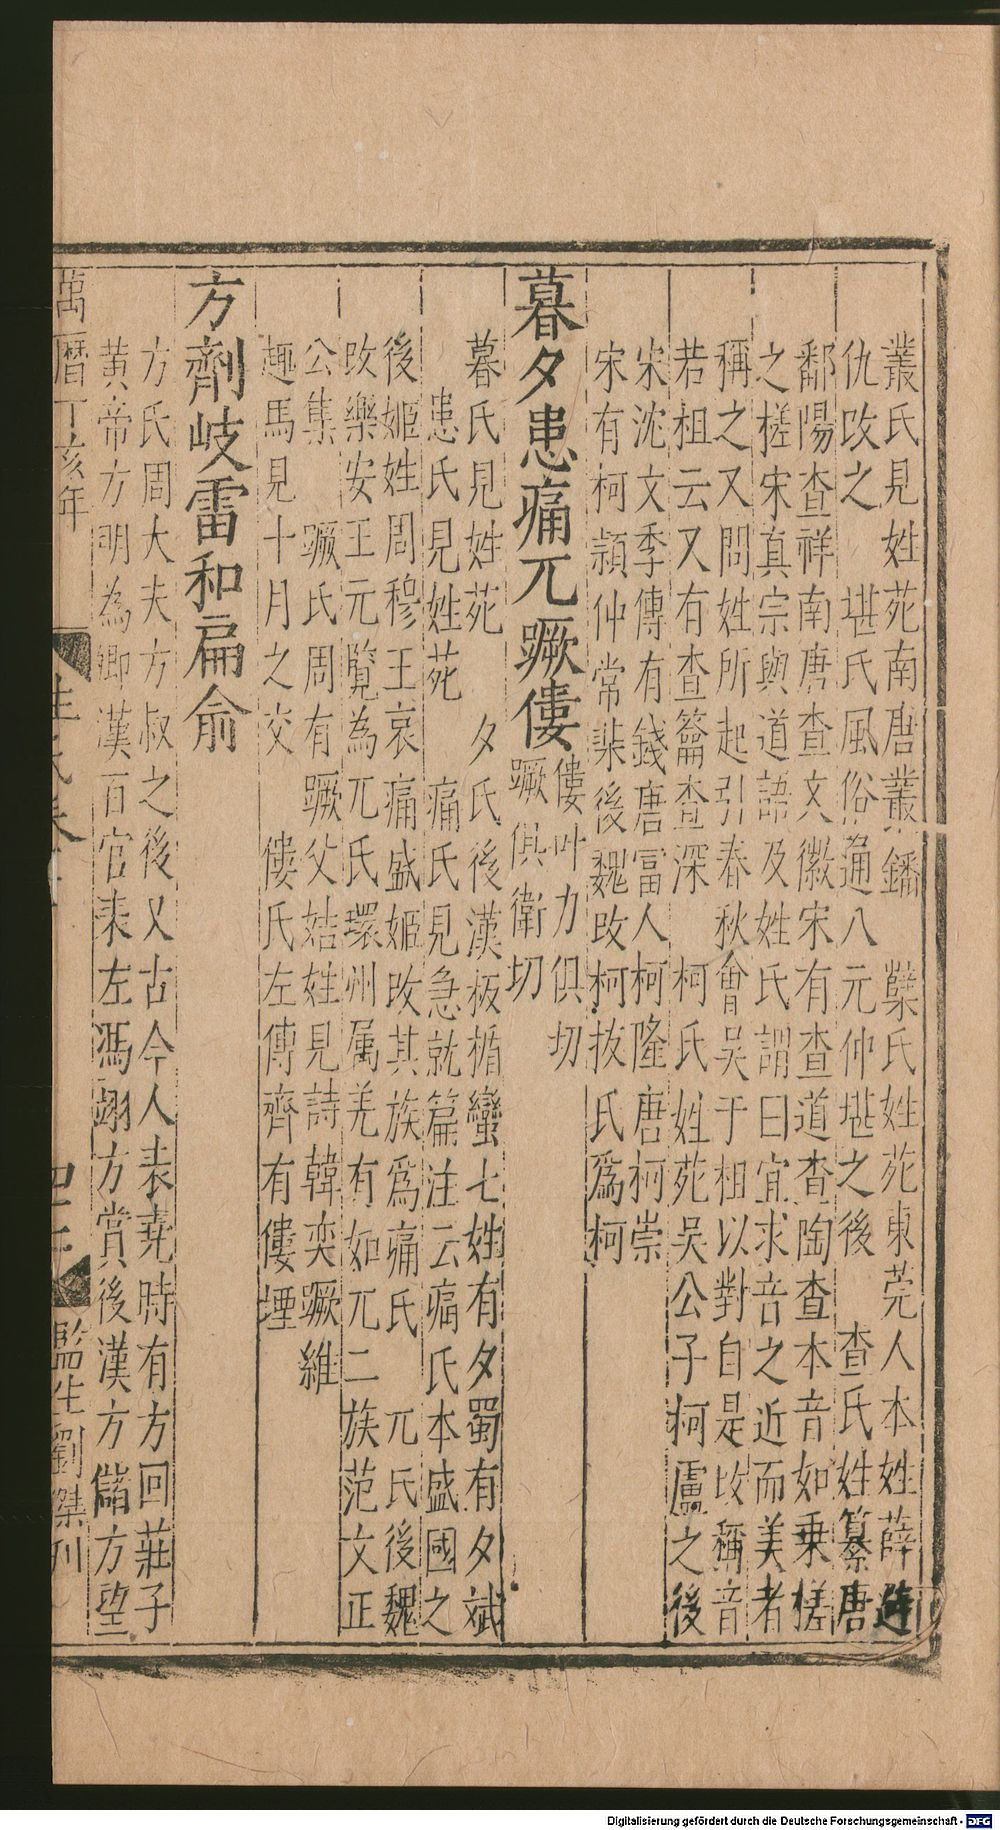 叢氏見姓苑南唐叢鐇　櫱氏姓苑東莞人本姓薛避
仇攺之　堪氏風俗通八元仲堪之後　查氏姓纂唐
鄱陽查祥南唐查文徽宋有查道查陶查本音如乗槎
之槎宋真宗與道語及姓氏謂曰宜求音之近而美者
稱之又問姓所起引春秋會吴于柤以對自是攺稱音
若祖云又有查籥查深　柯氏姓苑吴公子柯盧之後
宋沈文季傳有錢唐富人柯隆唐柯崇
宋有柯頴仲常棐後魏攺柯抜氏爲柯
暮夕患痛兀蹶僂
僂叶力俱切
蹶俱衛切
暮氏見姓苑　夕氏後漢板楯蠻七姓有夕蜀有夕斌
患氏見姓苑　痛氏見急就篇注云痛氏本盛國之
後姬姓周穆王哀痛盛姬攺其族爲痛氏　兀氏後魏
攺樂安王元覽為兀氏環州属羌有如兀二族范文正
公集　蹶氏周有蹶父姞姓見詩韓奕蹶維
趣馬見十月之交　僂氏左傳齊有僂堙
方劑岐雷和扁俞
方氏周大夫方叔之後又古今人表堯時有方回莊子
黄帝方明為御漢百官表左馮翊方賞後漢方儲方望
萬暦丁亥年
監生劉傑刊
Digitalisierung gefördert durch die Deutsche Forschungsgemeinschaft - DFG